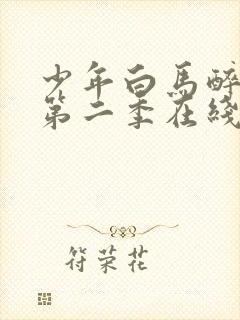 少年白馬醉
第二季在綫
符荣花